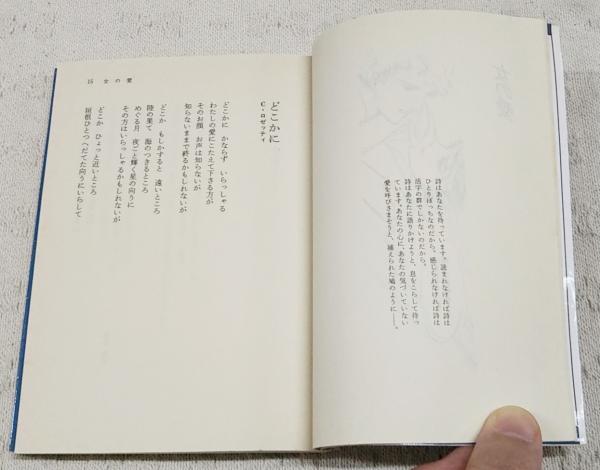 詩はあなたを待っています。読まれなければ詩は
ひとりぼっちなのだから。感じられなければ詩は
活字の群でしかないのだから。
詩はあなたに語りかけようと、息をこらして待っ
ています。あなたの心に、あなたの気づいていない
愛を呼びさまそうと、捕えられた鳩のように——。
15 女の愛
どこかに
C・ロゼッティ
どこかに かならず いらっしゃる
わたしの愛にこたえて下さる方が
そのお顔 お声は知らないが
知らないままで終るかもしれないが
どこか もしかすると 遠いところ
陸の果て 海のつきるところ
めぐる月 夜ごと輝く星の向うに
その方はいらっしゃるかもしれないが
どこか ひょっと近いところ
垣根ひとつ へだてた向うにいらして